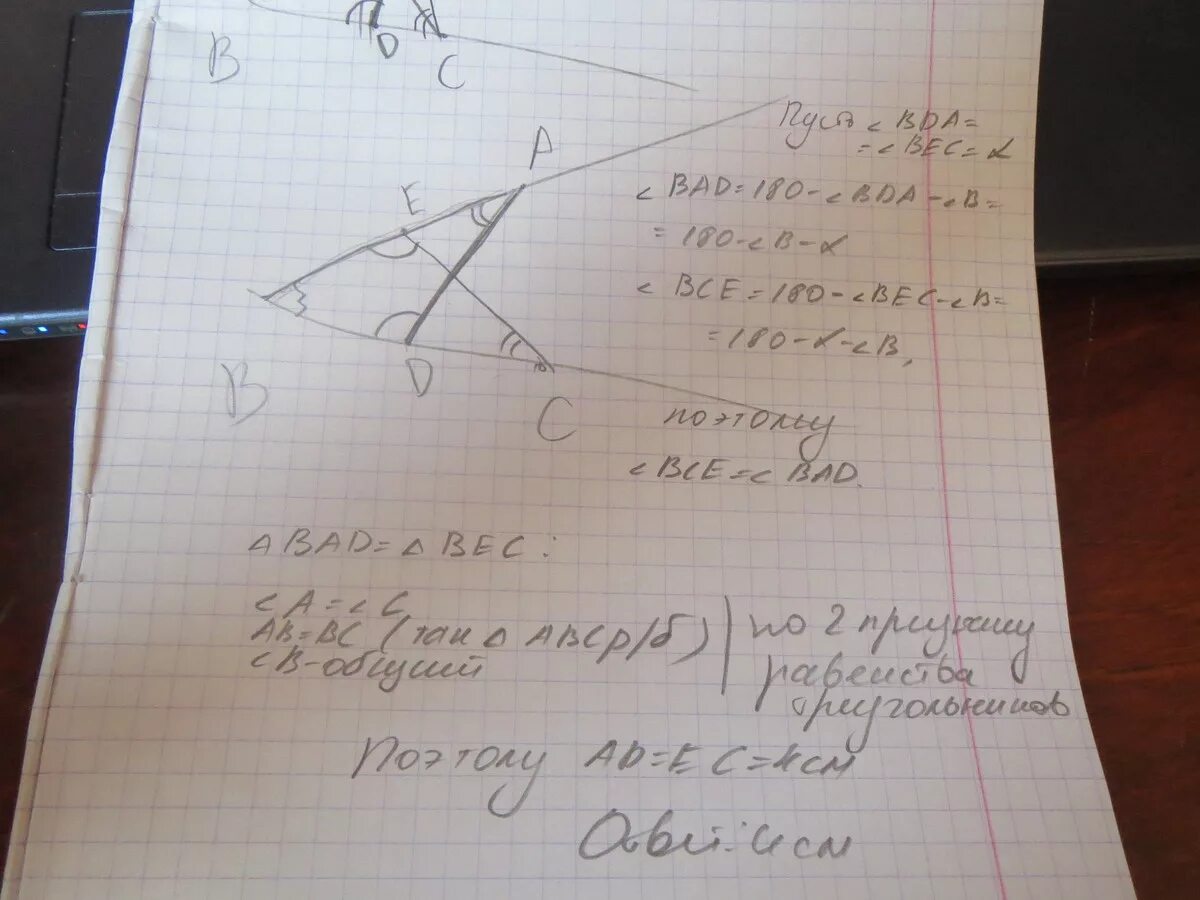 B
D
C
A
E
B
D
C
Пусть ∠BDA=
=∠BEC=α
∠BAD=180-∠BDA-∠B=
=180-∠B-α
∠BCE=180-∠BEC-∠B=
=180-α-∠B,
поэтому
∠BCE=∠BAD.
△BAD=△BEC:
∠A=∠C
AB=BC (так △ ABC р/б)
∠B-общий
по 2 признаку
равенства
треугольников
Поэтому AD=EC=4см
Ответ: 4см